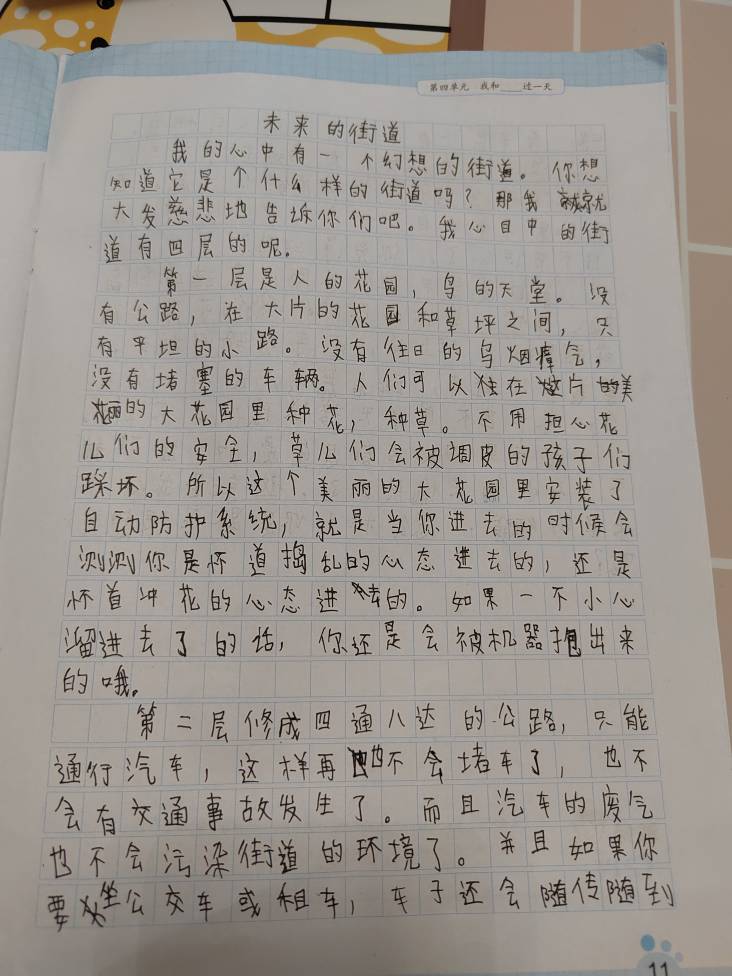 第四单元 我和____过一天
未来的街道
我的心中有一个幻想的街道。你想
知道它是个什么样的街道吗？那我就
大发慈悲地告诉你们吧。我心目中的街
道有四层的呢。
第一层是人的花园，鸟的天堂。没
有公路，在大片的花园和草坪之间，只
有平坦的小路。没有往日的乌烟瘴气，
没有堵塞的车辆。人们可以独在这片的美
丽的大花园里种花，种草。不用担心花
儿们的安全，草儿们会被调皮的孩子们
踩坏。所以这个美丽的大花园里安装了
自动防护系统，就是当你进去的时候会
测测你是怀道捣乱的心态进去的，还是
怀首冲花的心态进去的。如果一不小心
溜进去了的话，你还是会被机器抱出来
的哦。
第二层修成四通八达的公路，只能
通行汽车，这样再也不会堵车了，也不
会有交通事故发生了。而且汽车的废气
也不会污染街道的环境了。并且如果你
要坐公交车或租车，车子还会随传随到
11